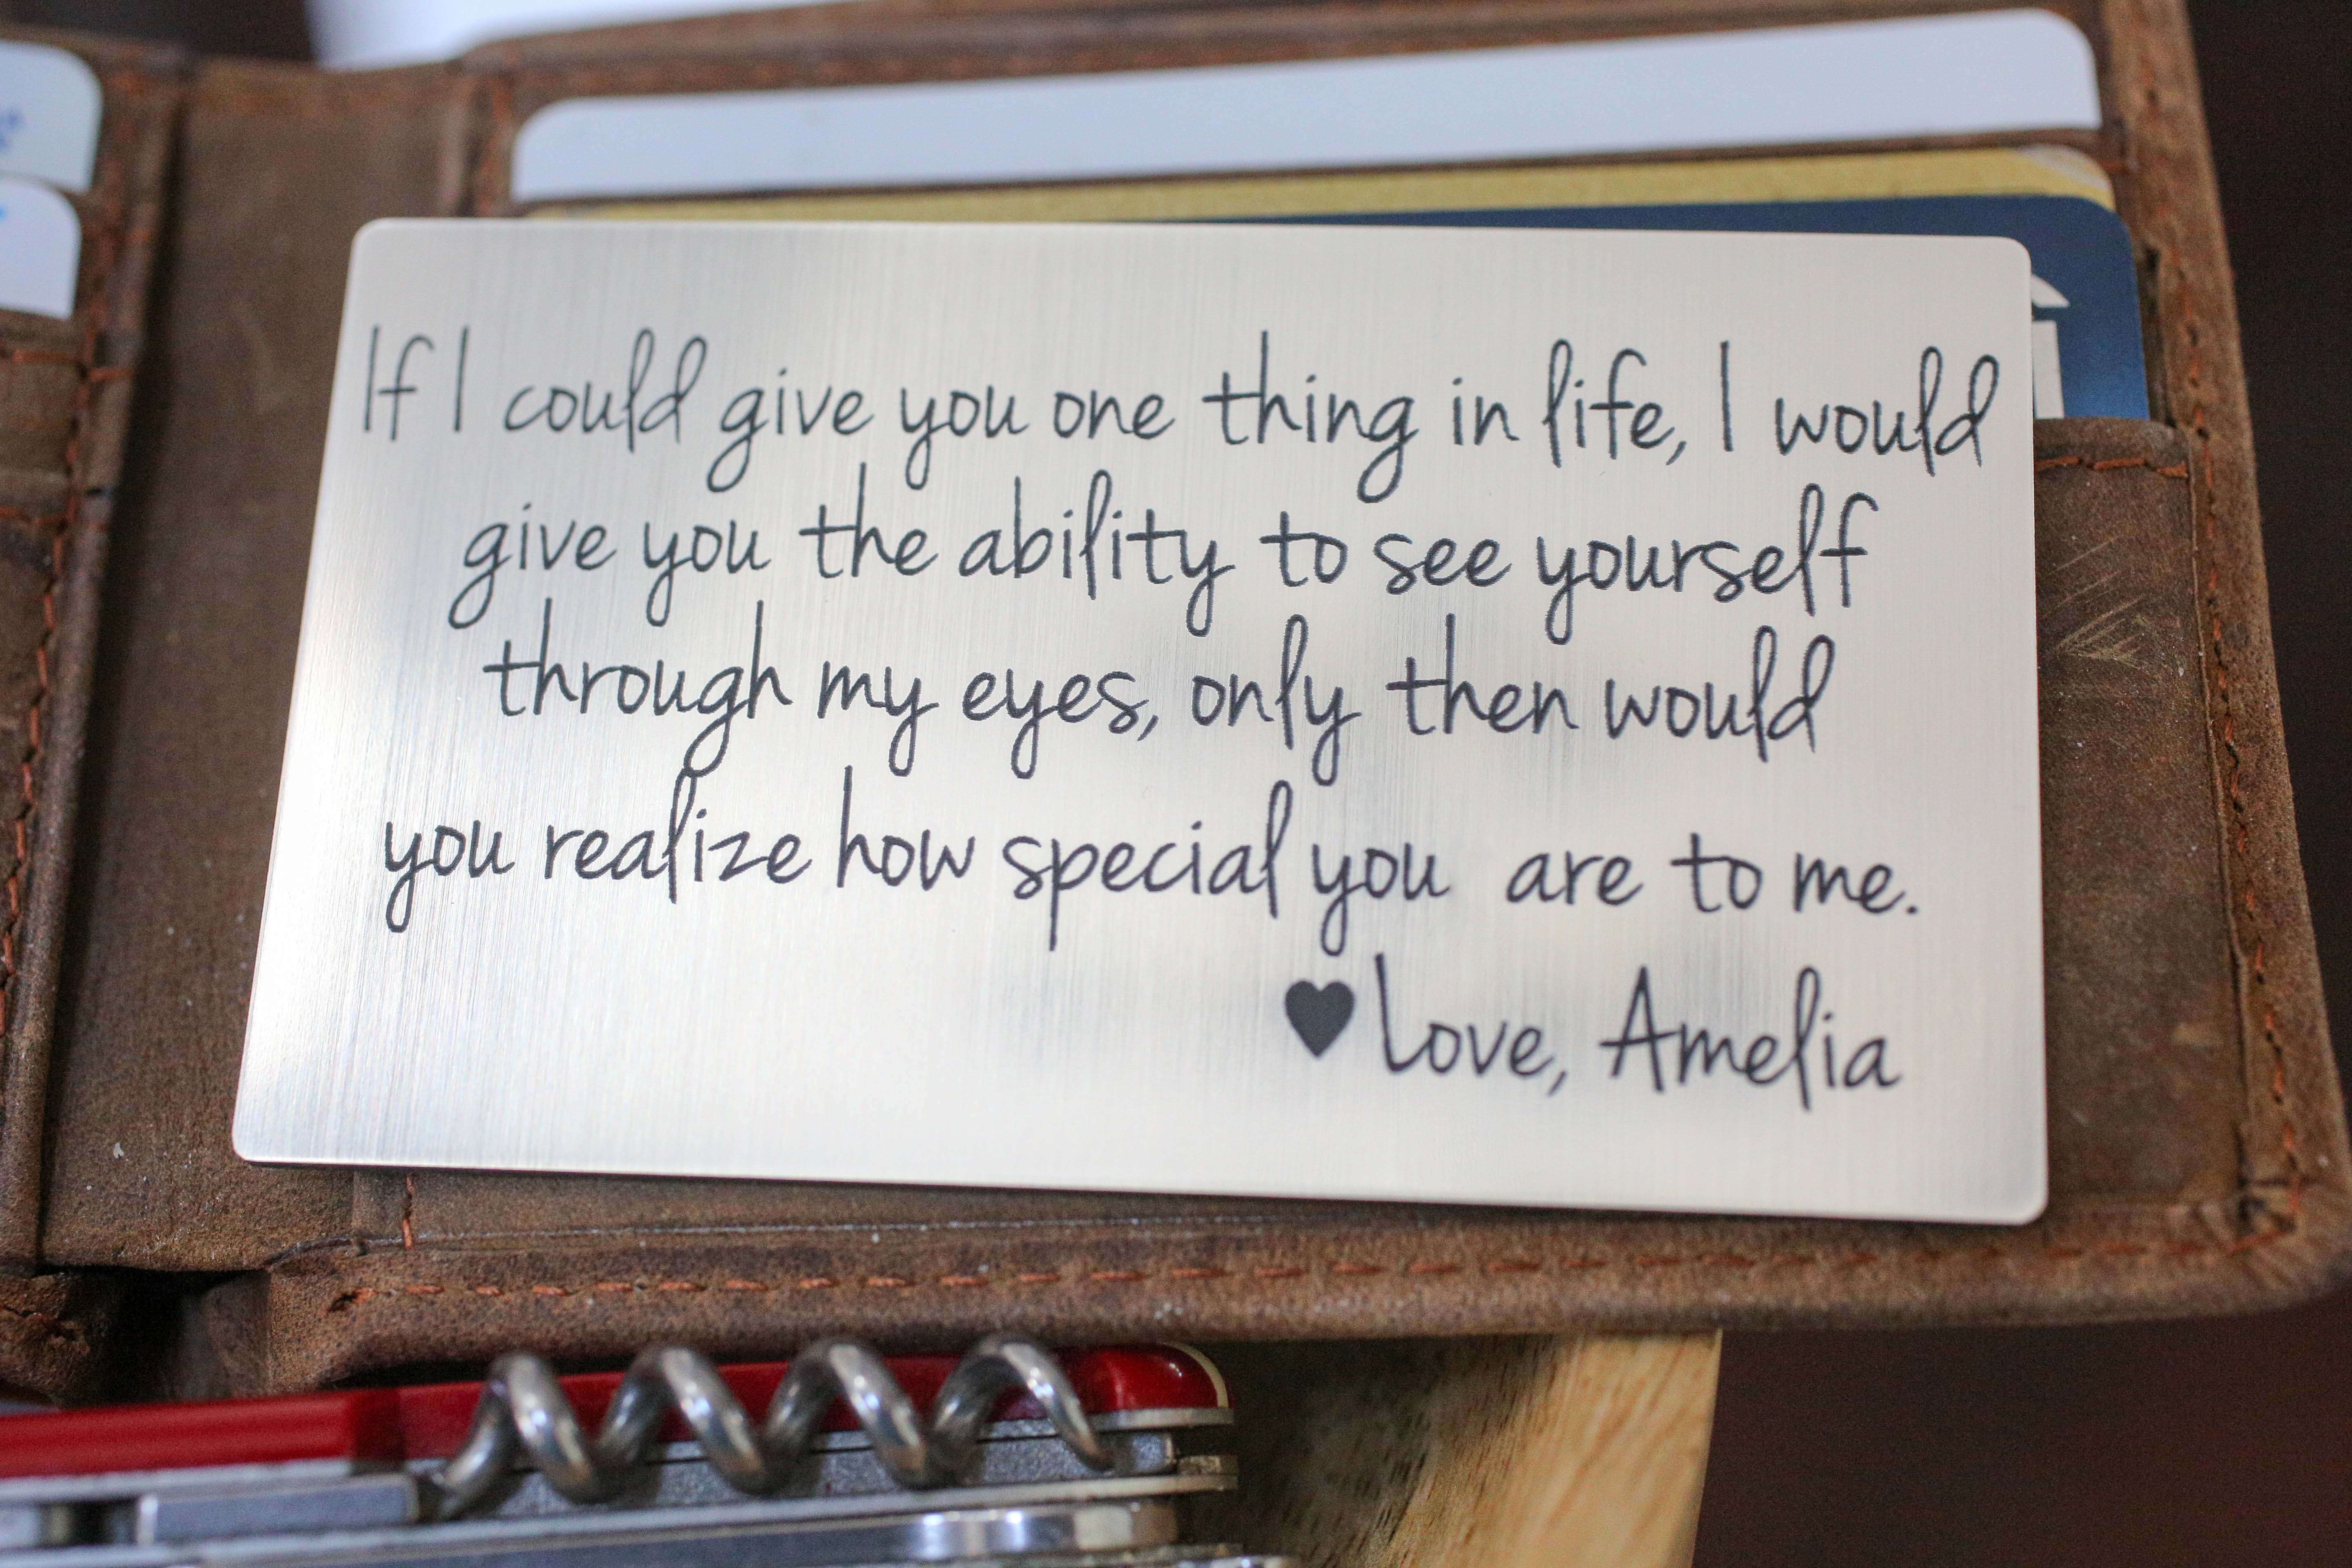 If I could give you one thing in life, I would
give you the ability to see yourself
through my eyes, only then would
you realize how special you are to me.
♥ Love, Amelia